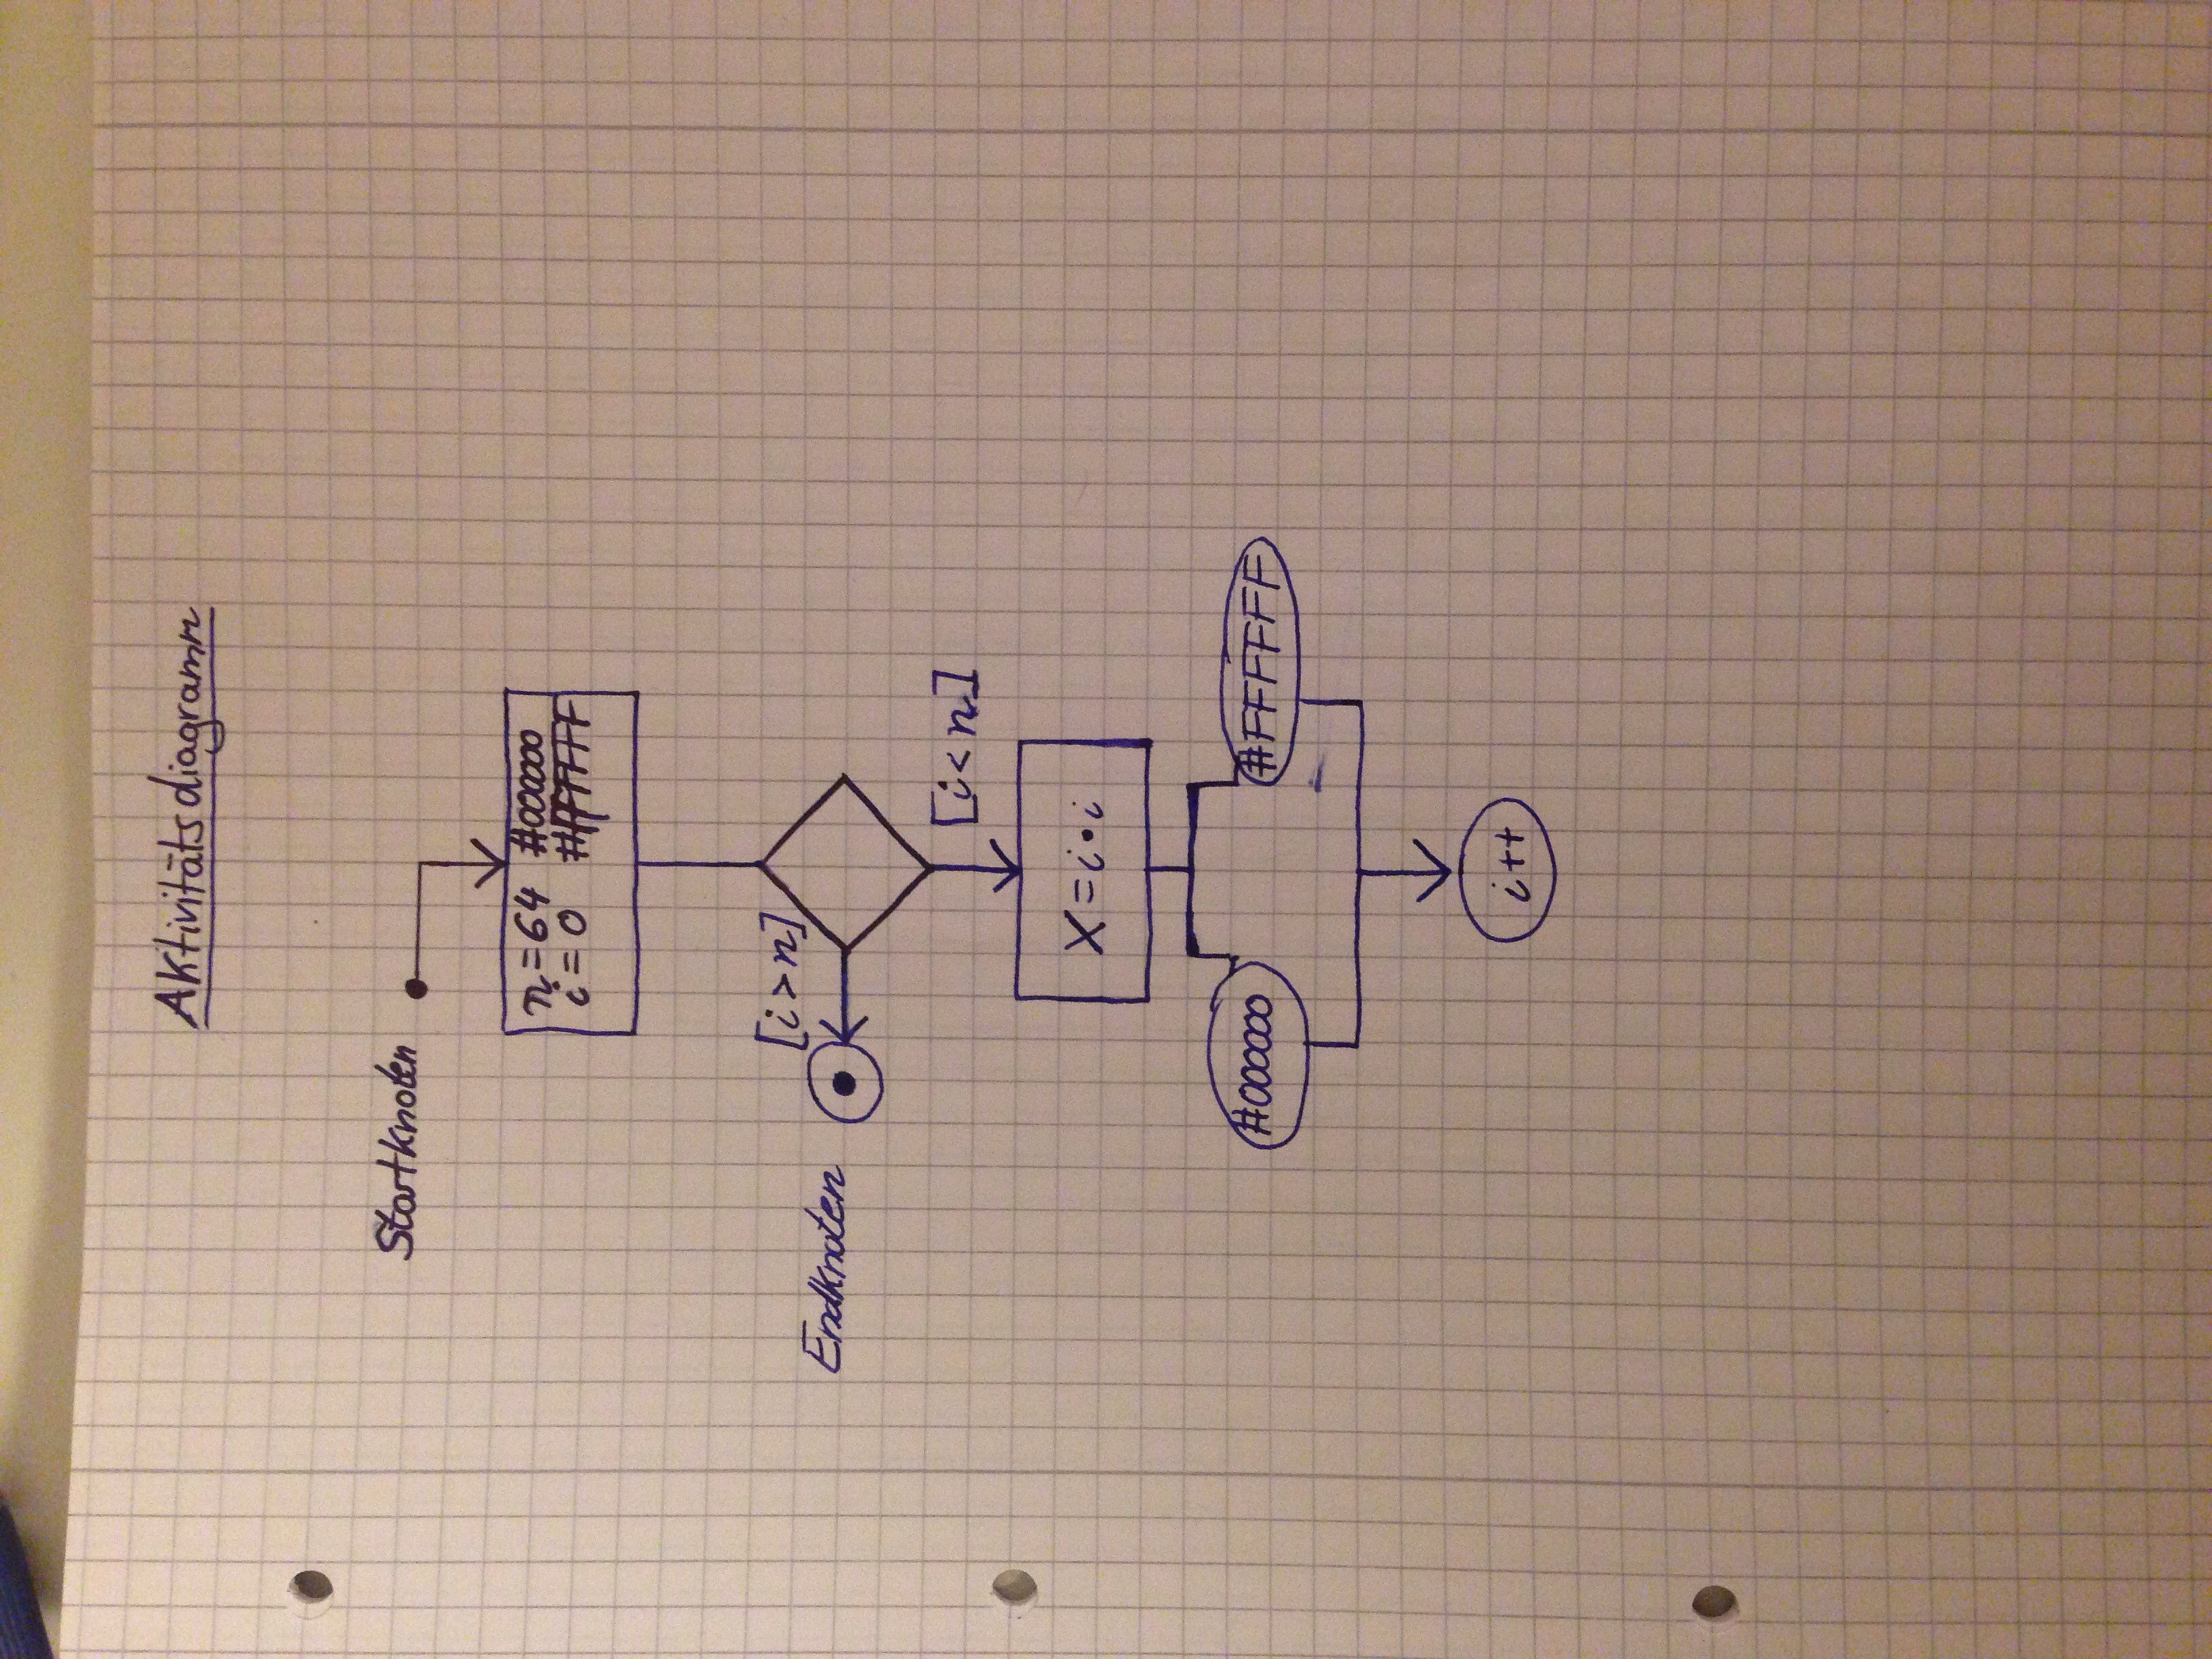 Aktivitätsdiagramm
Startknoten
n=64 #000000
i=0 #FFFFFF
[i>n]
Endknoten
[i<n]
X=i•i
#000000 #FFFFFF
i++